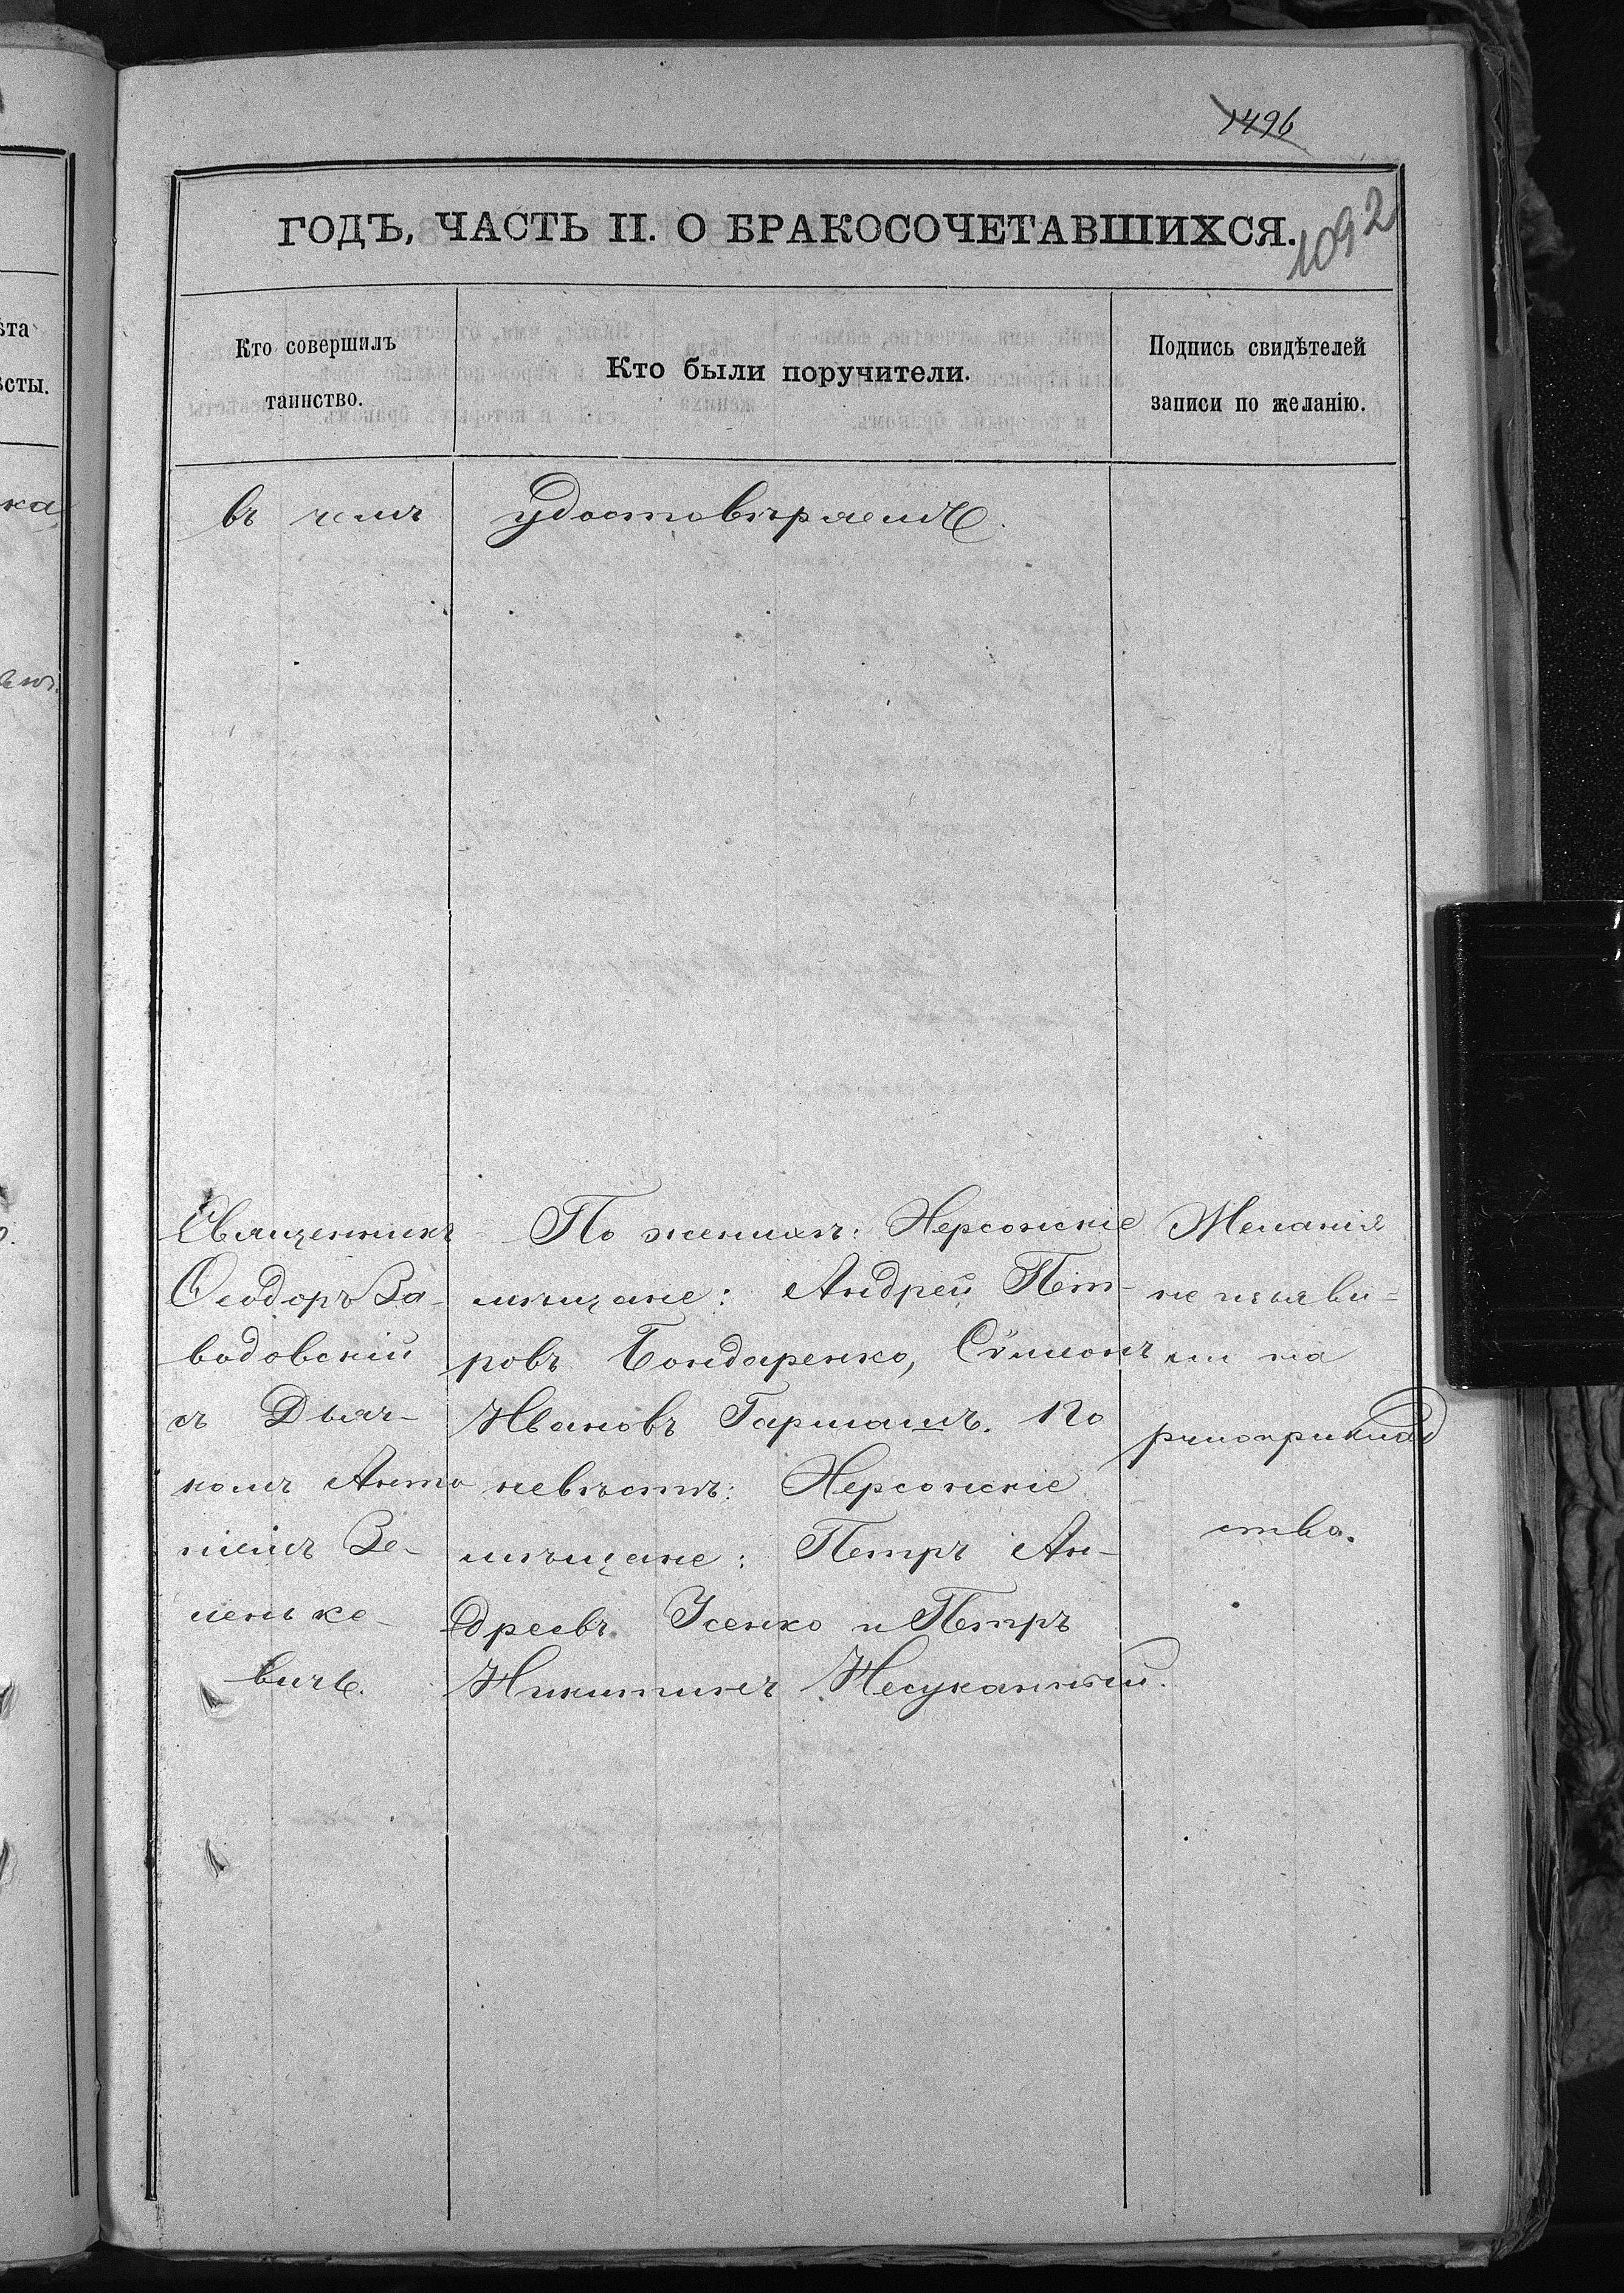 1496
ГОДЪ, ЧАСТЬ II. О БРАКОСОЧЕТАВШИХСЯ.
1092
Кто совершилъ
таинство.
Кто были поручители.
Подпись свидѣтелей
записи по желанію.
ѣта
ѣсты.
ка
въ чемъ удостовѣряемъ.
Священникъ
Ѳеодоръ За-
водовскій
съ Дьяч-
комъ Анто
ніемъ Зе-
леньке-
вичъ.
По женихѣ: Херсонскіе
мѣщане: Андрей Пет-
ровъ Бондаренко, Сѵмеонъ
Ивановъ Гармашъ. По
невѣстѣ: Херсонскіе
мѣщане: Петръ Ан-
дреевъ Усенко и Петръ
Никитинъ Несуканный.
Желанія
не изъяви-
ли на
ство.